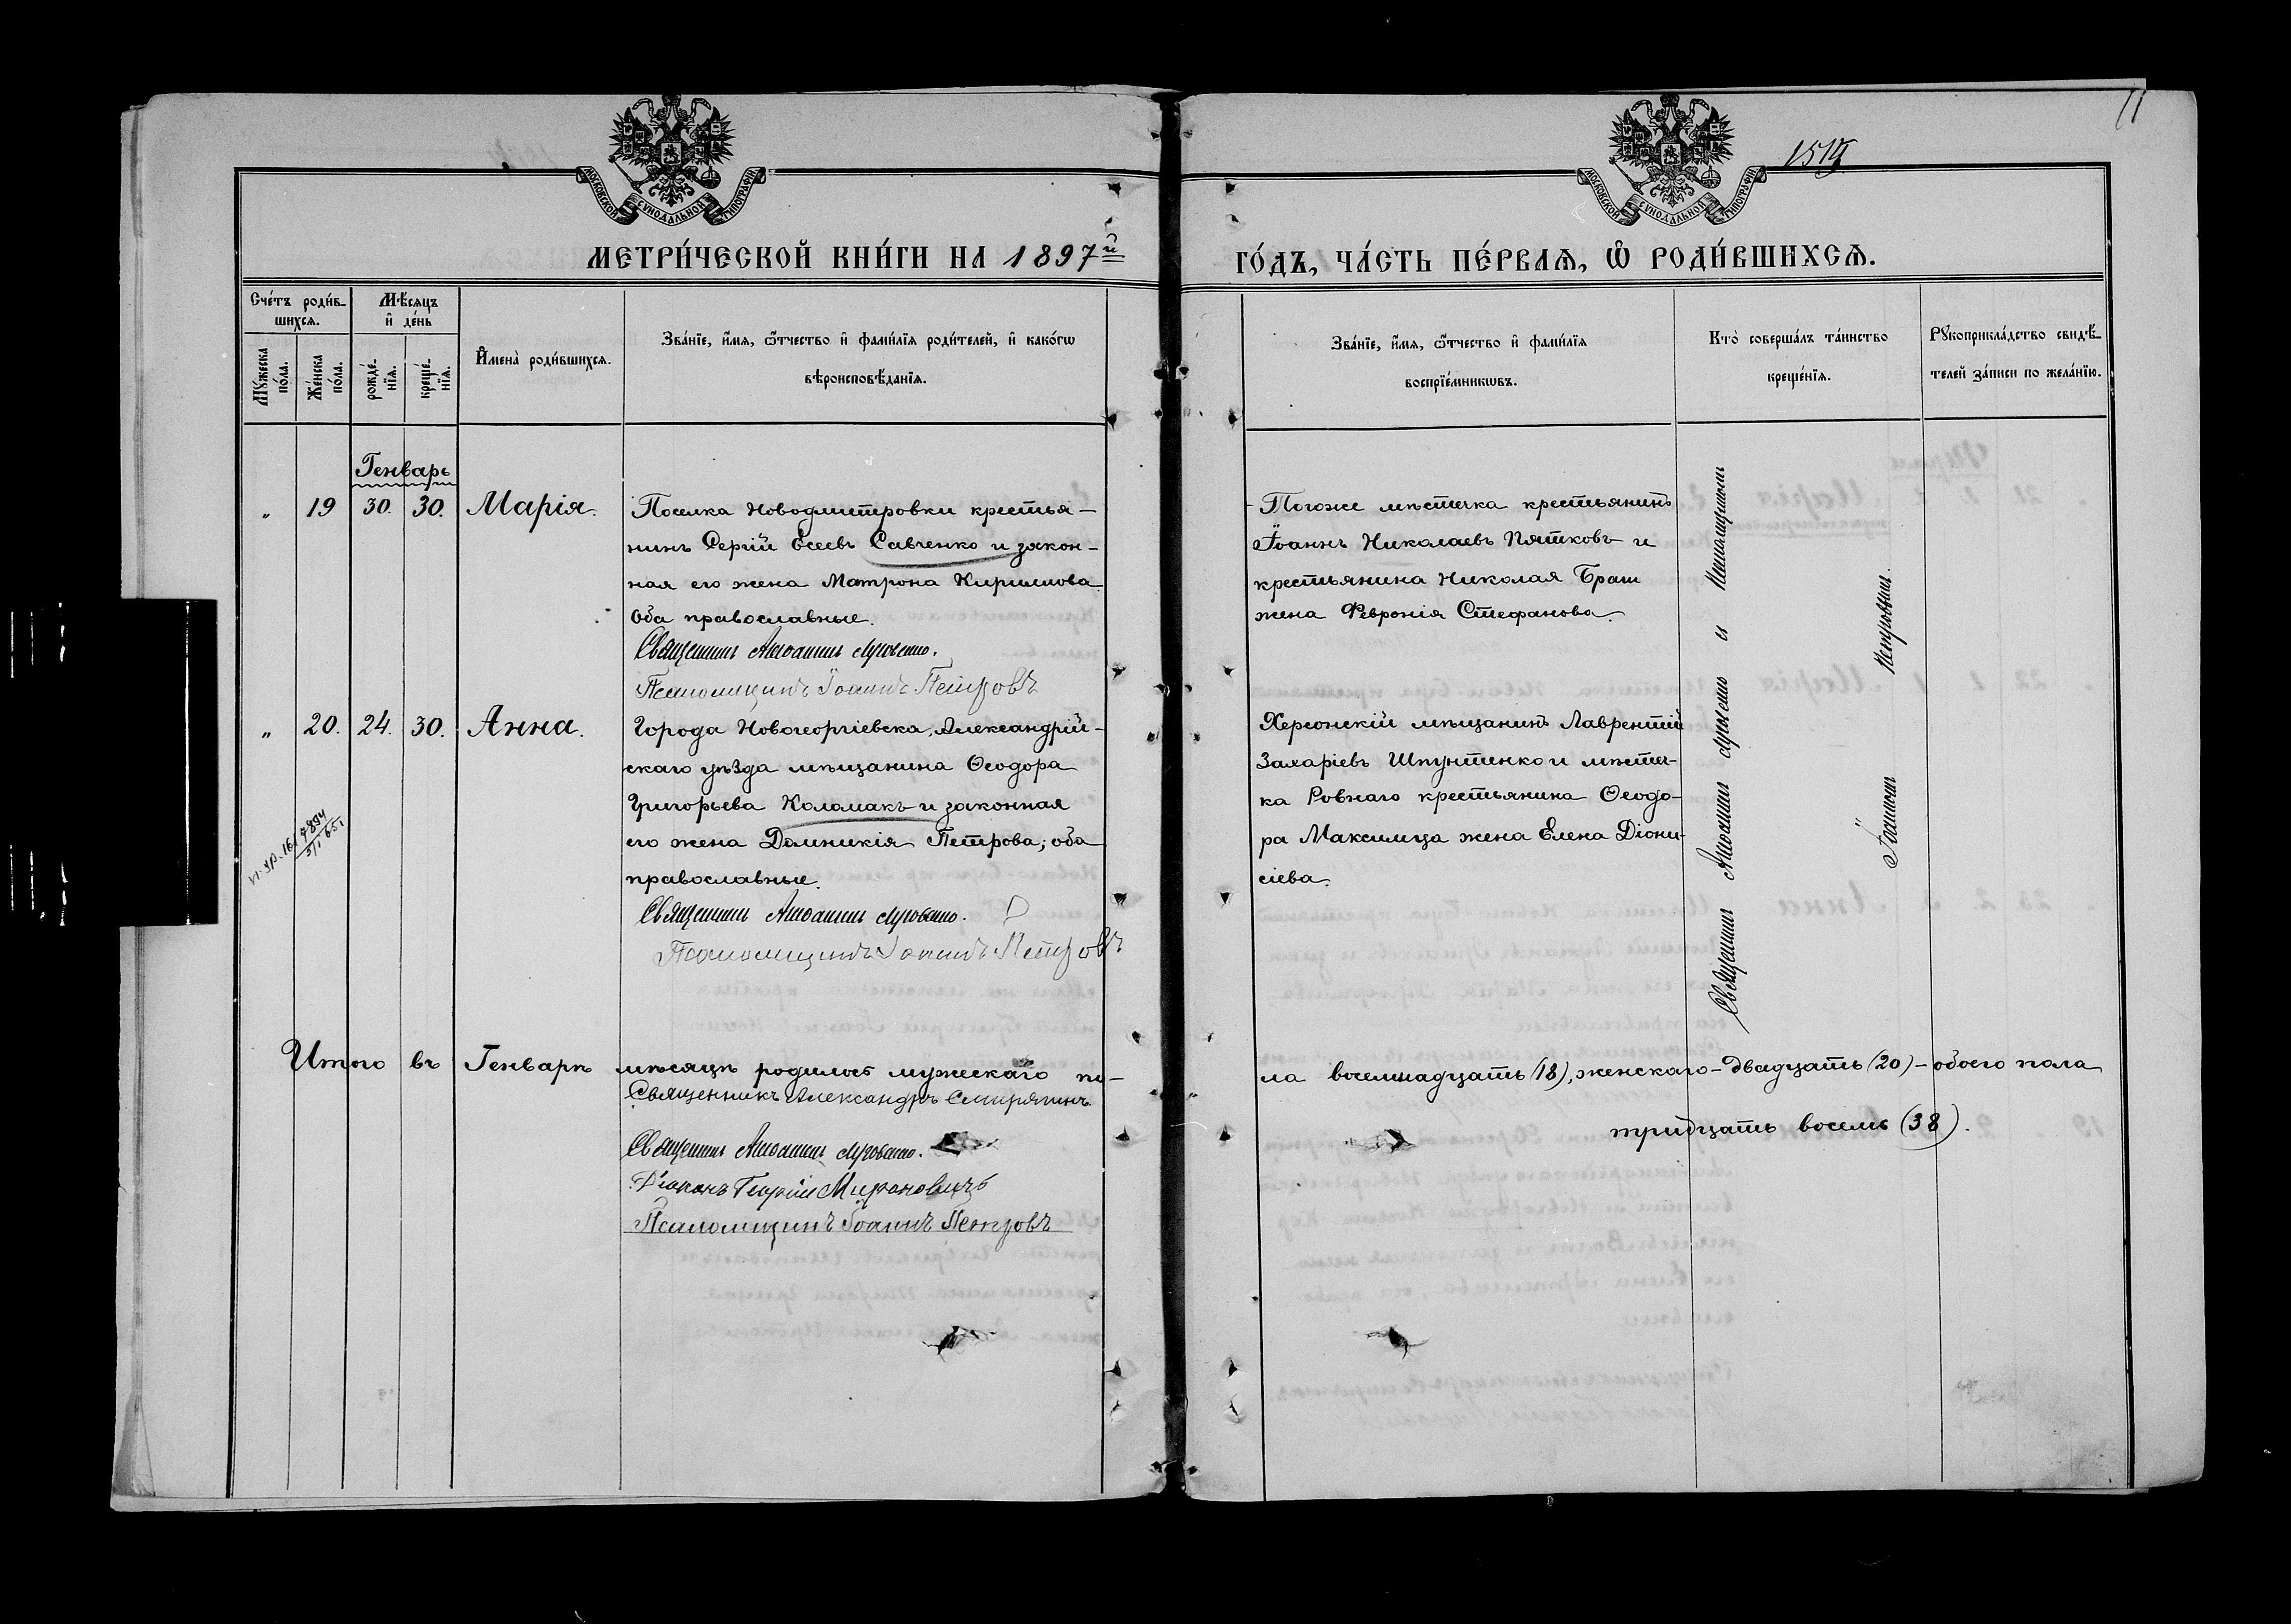 11
1519
МОСКОВСКОЙ СУНОДАЛЬНОЙ ТИПОГРАФИИ
МОСКОВСКОЙ СУНОДАЛЬНОЙ ТИПОГРАФИИ
МЕТРИ́ЧЕСКОЙ КНИ́ГИ НА 1897й
ГО́ДЪ, ЧА́СТЬ ПЕ́РВАѦ, Ѡ РОДИ́ВШИХСѦ.
Сче́тъ роди́в-
шихсѧ.
Мѣ́сяцъ
и҆ де́нь
Мꙋ́жеска
по́ла.
Же́нска
по́ла.
рожде́-
нїѧ.
креще́-
нїѧ.
И҆мена̀ роди́вшихсѧ.
Зва́нїе, и҆́мѧ, ѻ҆́тчество и҆ фами́лїѧ роди́телей, и҆ како́гѡ
вѣроисповѣ́данїѧ.
Зва́нїе, и҆́мѧ, ѻ҆́тчество и҆ фами́лїѧ
воспрїе́мникѡвъ.
Кто̀ соверша́лъ та́инство
креще́нїѧ.
Рꙋкоприкла́дство свидѣ́-
телей за́писи по жела́нїю.
Генварь
„ 19 30. 30. Марія.
Поселка Новодмитровки крестья-
нинъ Сергій Евсеевъ Савченко и закон-
ная его жена Матрона Кириллова.
Оба православные.
Священникъ Луговенко.
Псаломщикъ Іоаннъ Петровъ
Тогоже мѣстечка крестьянинъ
Іоаннъ Николаевъ Пятковъ и
крестьянина Николая Браш
жена Февронія Стефанова.
„ 20. 24. 30. Анна.
Города Новогеоргіевска, Александрій-
скаго уѣзда мѣщанина Ѳеодора
Григорьева Каламакъ и законная
его жена Домникія Петрова; оба
православные.
Священникъ Луговенко.
Псаломщикъ Іоаннъ Петровъ
Херсонскій мѣщанинъ Лаврентій
Захаріевъ Шпунтенко и мѣстеч-
ка Ровнаго крестьянина Ѳеодо-
ра Максимца жена Елена Діони-
сіева.
Священникъ Луговенко и Псаломщикъ
Іоаннъ Петровъ.
Итого въ Генварѣ мѣсяцѣ родилось мужескаго по-
ла восемнадцать (18), женскаго - двадцать (20) - обоего пола
тридцать восемь (38).
Священникъ Александръ
Священникъ Луговенко.
Діаконъ Георгій Мироновичъ
Псаломщикъ Іоаннъ Петровъ